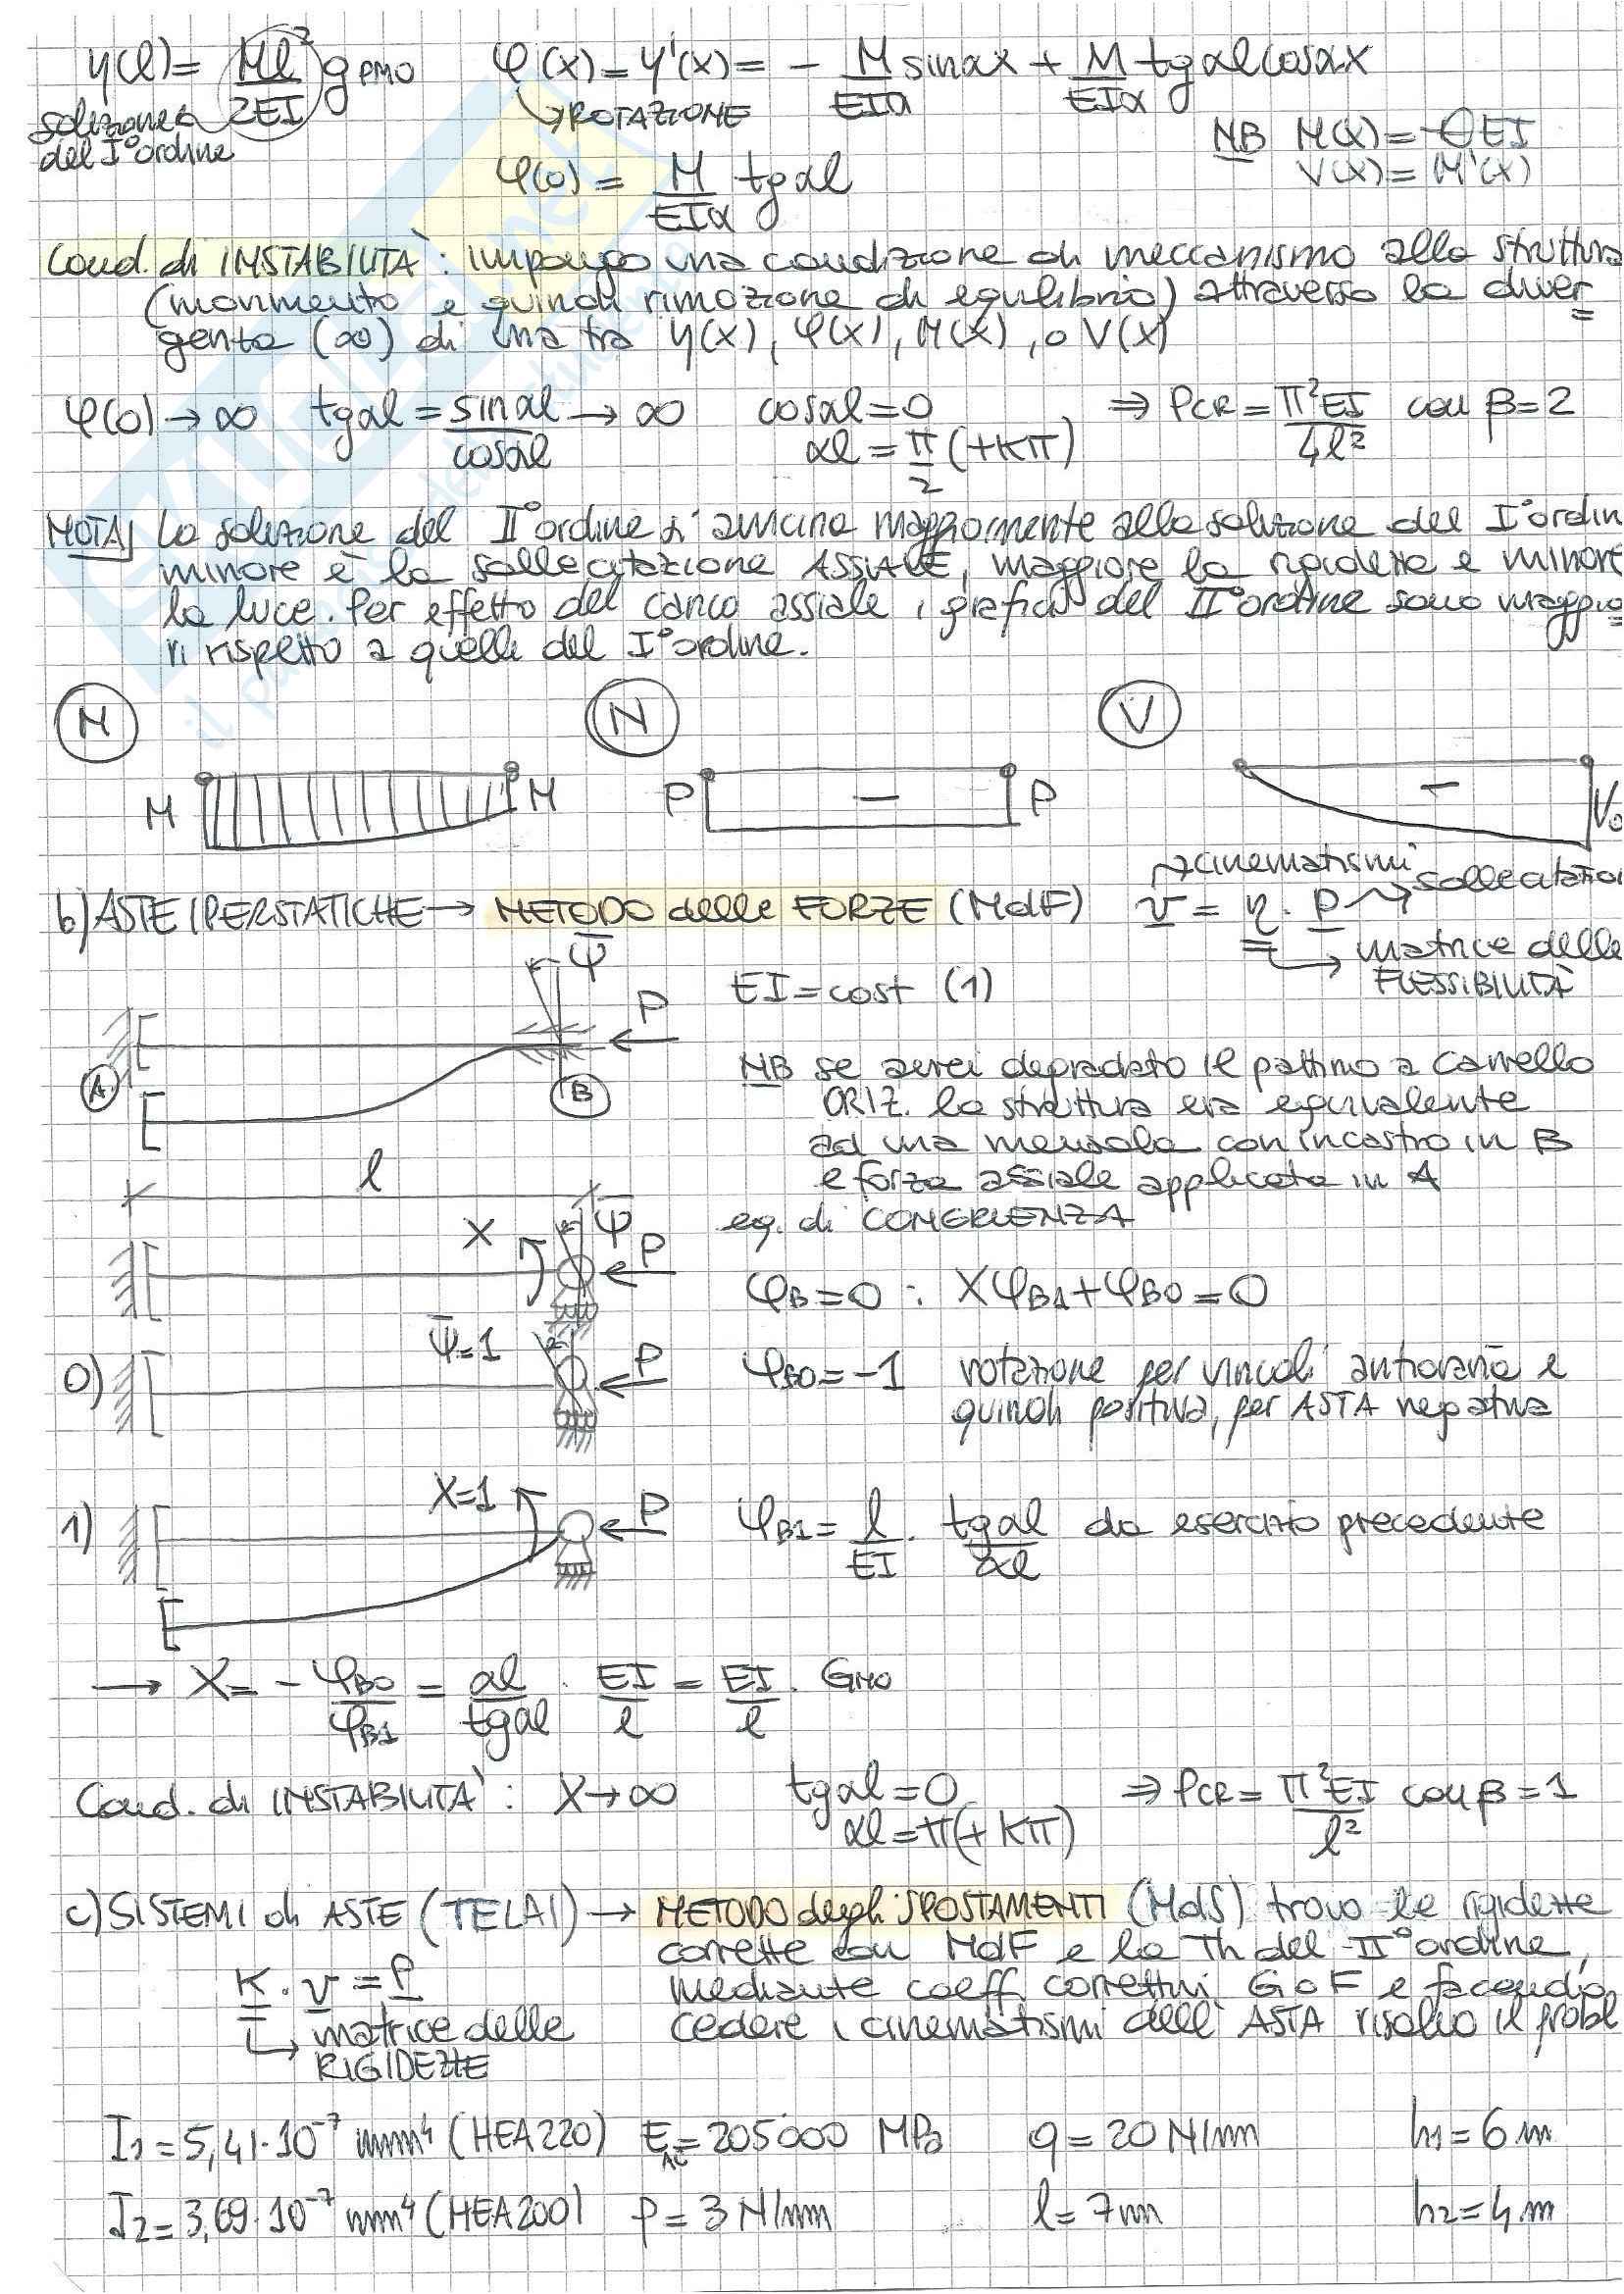 η(l) = Ml²/2EI g PMO    φ(x) = y'(x) = - M/EIα sinαx + M/EIα tgαl cosαx
soluzione del I° ordine    ↳ ROTAZIONE    NB M(x) = -θEI
V(x) = M'(x)
φ(0) = M/EIα tgαl
Cond. di INSTABILITÀ: impongo una condizione di meccanismo alla struttura
(movimento e quindi rimozione di equilibrio) attraverso la diver
genta (∞) di una tra η(x), φ(x), M(x), o V(x)
φ(0) → ∞    tgαl = sinαl/cosαl → ∞    cosαl = 0    ⇒ PCR = π²EI/4l² con β = 2
αl = π/2 (+Kπ)
NOTA) La soluzione del II° ordine si avvicina maggiormente alla soluzione del I° ordin
minore è la sollecitazione ASSIALE, maggiore la rigidezza e minore
la luce. Per effetto del carico assiale i grafici del II° ordine sono maggio
ri rispetto a quelli del I° ordine.
M    N    V
M    M    P    -    P    -    V₀
b) ASTE IPERSTATICHE → METODO delle FORZE (MdF)    v = η · P
cinematismi    sollecitazioi
matrice delle FLESSIBILITÀ
ψ̄    P    EI = cost (1)
A    B
NB se avrei degradato il pattino a carrello
ORIZ. la struttura era equivalente
ad una mensola con incastro in B
e forza assiale applicata in A
l
eq. di CONGRUENZA
X    ψ̄    P
φB = 0 : XφB1 + φB0 = 0
0)    ψ̄ = 1    P    φB0 = -1    rotazione per vincoli antioraria e
quindi positiva, per ASTA negativa
1)    X = 1    P    φB1 = l/EI · tgαl/αl    da esercizio precedente
→ X = - φB0/φB1 = αl/tgαl · EI/l = EI/l · GMO
Cond. di INSTABILITÀ: X → ∞    tgαl = 0    ⇒ PCR = π²EI/l² con β = 1
αl = π(+Kπ)
c) SISTEMI di ASTE (TELAI) → METODO degli SPOSTAMENTI (MdS) trovo le rigidezze
corrette con MdF e la Th del II° ordine,
K · v = P    mediante coeff. correttivi G o F e facendo
matrice delle    cedere i cinematismi dell'ASTA risolvo il probl
RIGIDEZZE
I1 = 5,41·10⁻⁷ mm⁴ (HEA 220)    EAC = 205000 MPa    q = 20 N/mm    h1 = 6 m
I2 = 3,69·10⁻⁷ mm⁴ (HEA 200)    p = 3 N/mm    l = 7 m    h2 = 4 m